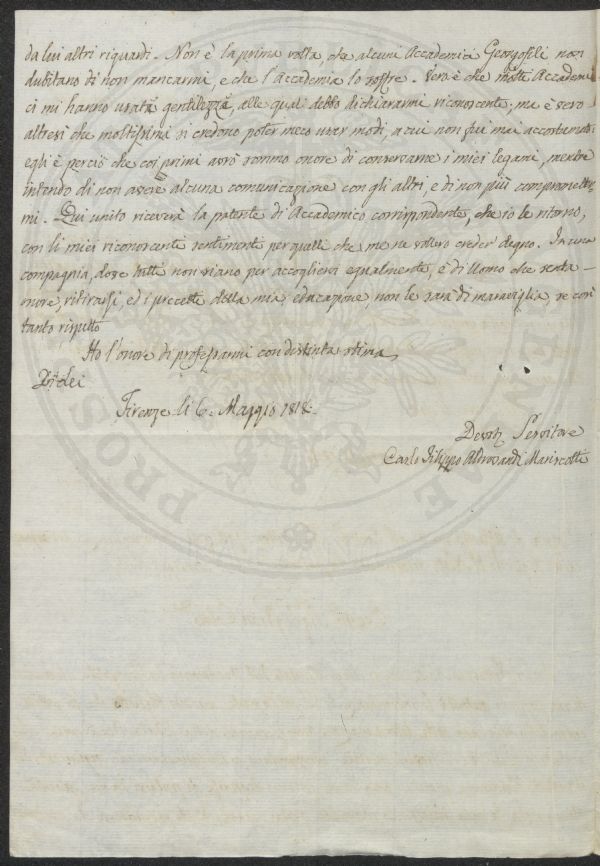 da lui altri riguardi. Non è la prima volta, che alcuni Accademici Georgofili non
dubitano di non mancarmi, e che l'Accademia lo soffre. Vero è che molti Accademi-
ci mi hanno usata gentilezza, alle quali debbo dichiararmi riconoscente; ma è vero
altresì che moltissimi si credono poter meco usar modi, a cui non fui mai accostumato
egli è perciò che coi primi avrò sommo onore di conservarne i miei legami, mentre
intendo di non avere alcuna comunicazione con gli altri, e di non più compromettermi
mi. Qui unito riceverà la patente di Accademico corrispondente, che io le ritorno,
con li miei riconoscenti sentimenti per quelli che me ne vollero creder degno. In una
compagnia, dove tutti non siano per accogliersi egualmente, è di Uomo che senta
onore, ritirarsi, ed i precetti della mia educazione, non le sarà di maraviglia, se così
tanto rispetto
Ho l'onore di professarmi con distinta stima
Di Lei
Firenze li 6. Maggio 1818.
Devot. Servitore
Carlo Filippo Aldrovandi Mariscotti
PROS